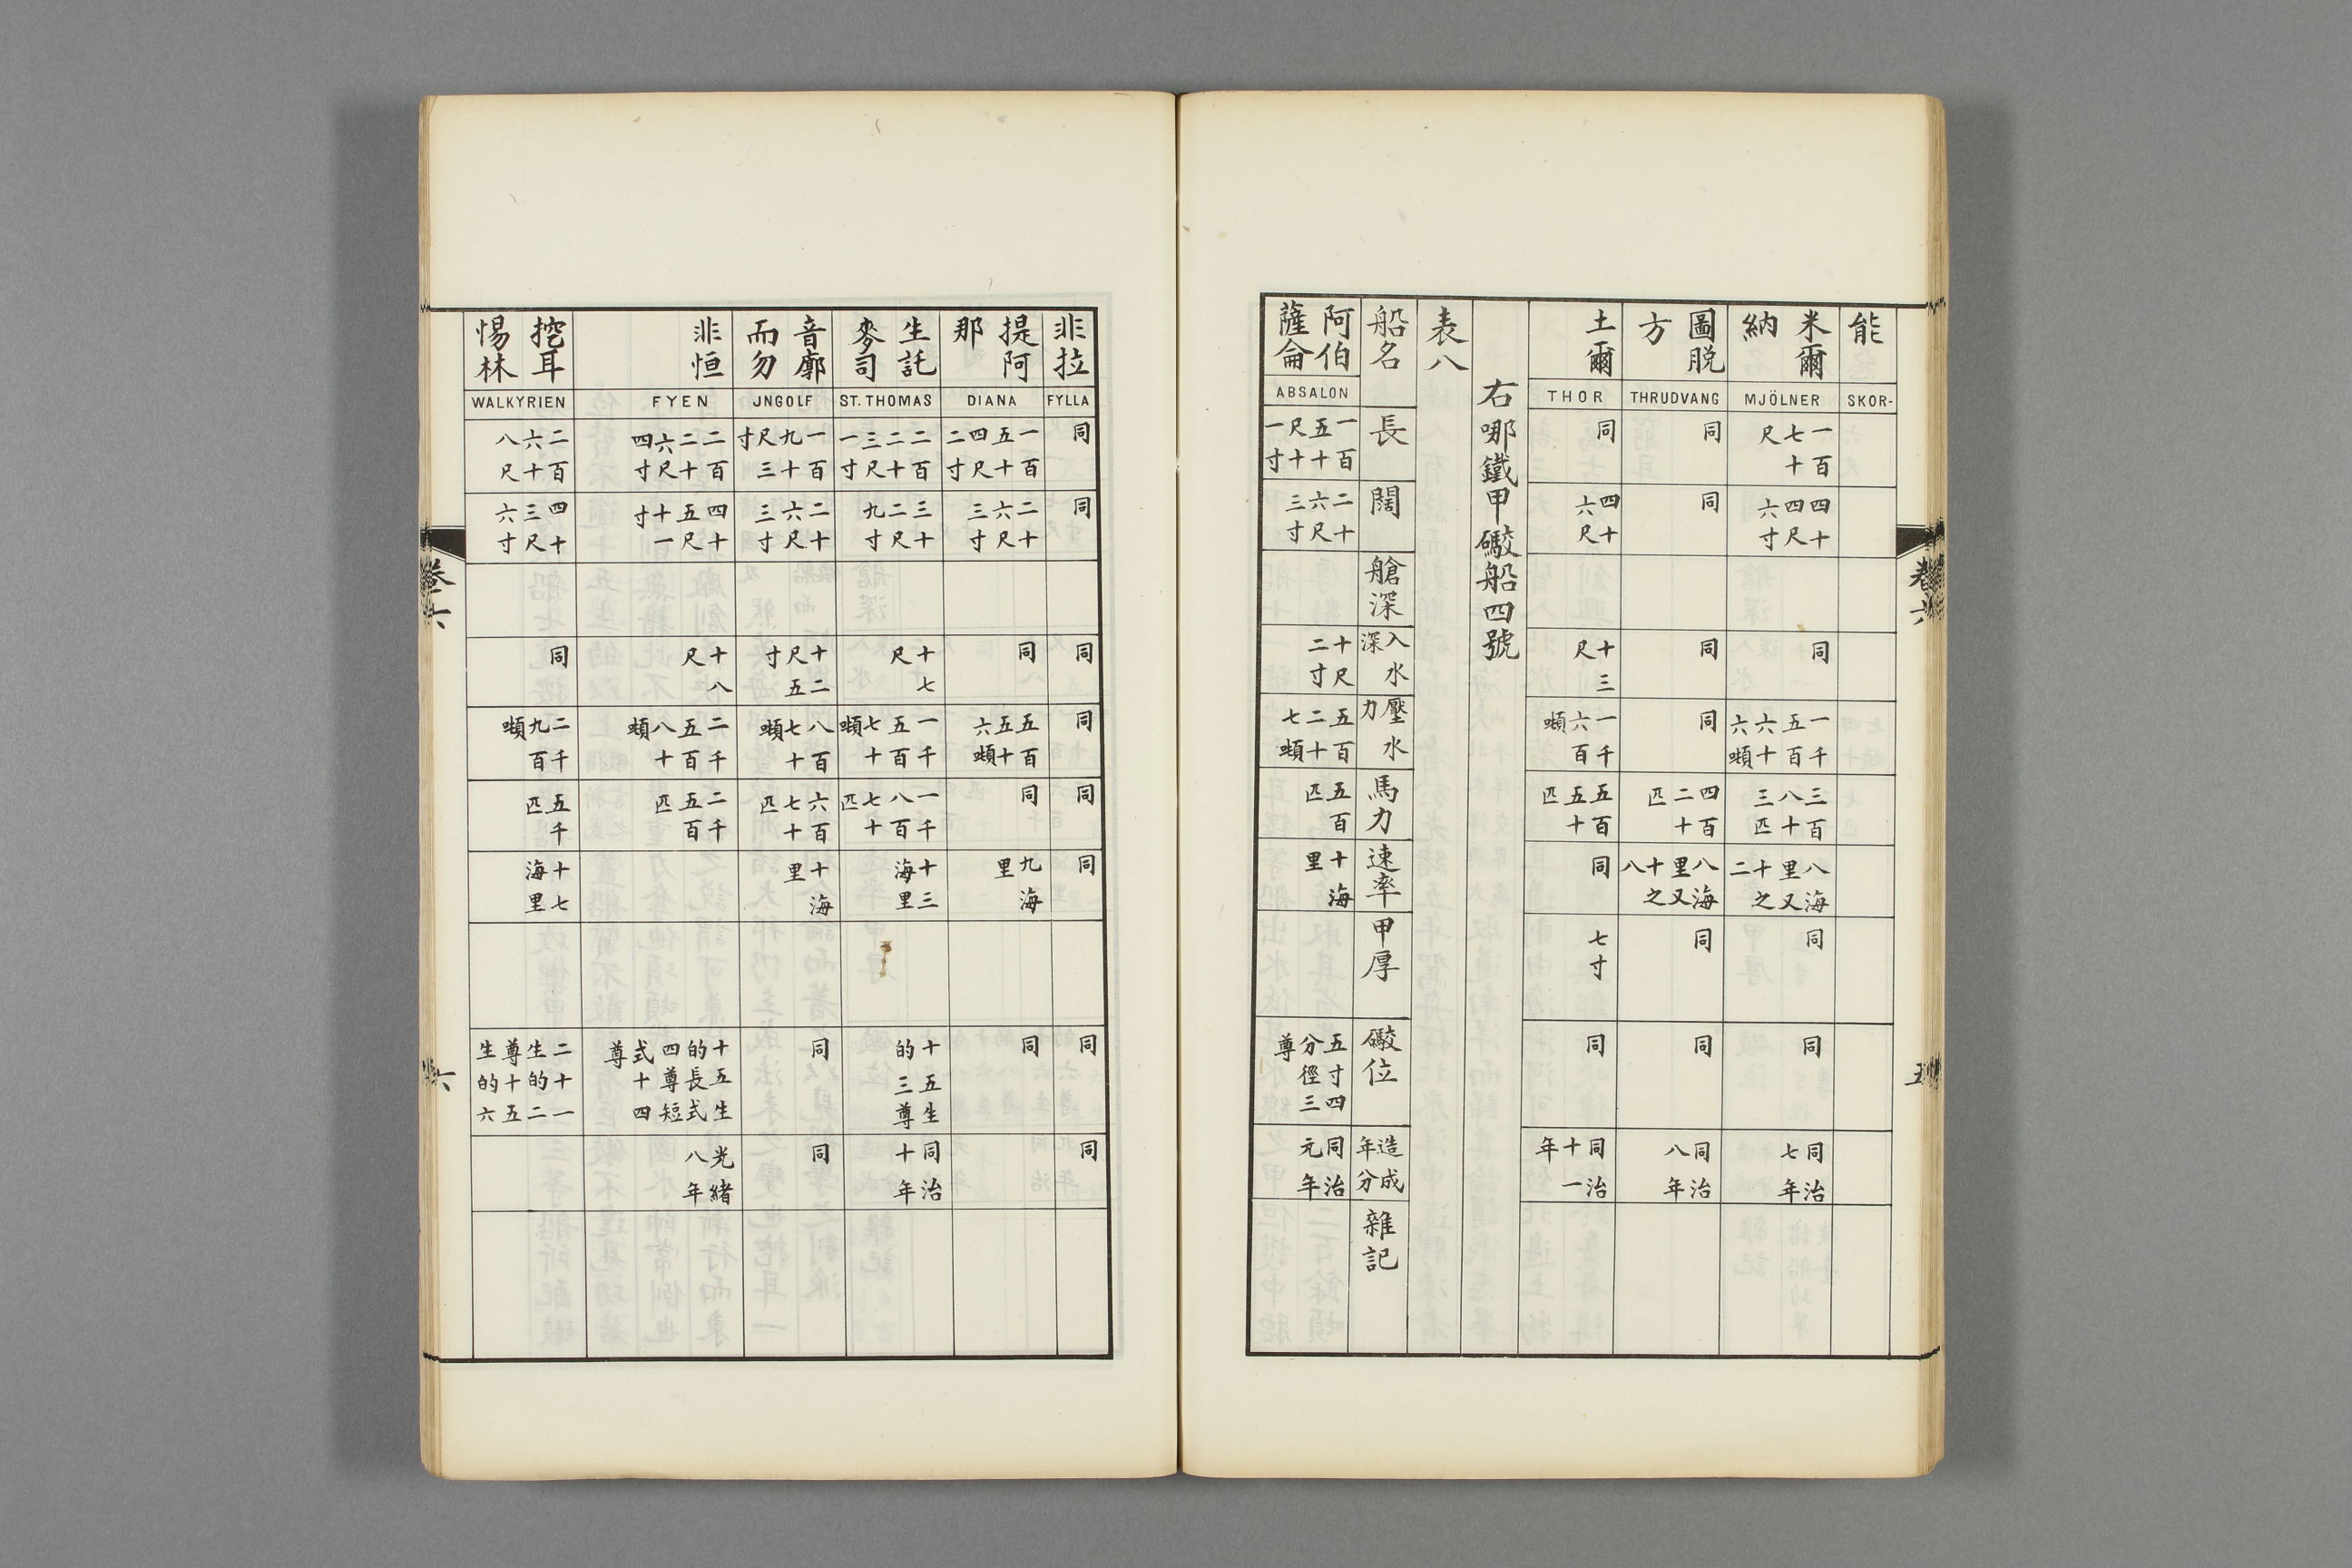 能
SKOR-
米爾納
MJÖLNER
一百七十尺
四十四尺六寸
同
一千五百六十六噸
三百八十三匹
八海里又十之二
同
同
同治七年
圖脱方
THRUDVANG
同
同
同
同
四百二十匹
八海里又十之八
同
同
同治八年
土爾
THOR
同
四十六尺
十三尺
一千六百噸
五百五十匹
同
七寸
同
同治十一年
右嗹鐵甲礮船四號
表八
船名
長
闊
艙深
入水深
壓水力
馬力
速率
甲厚
礮位
造成年分
雜記
阿伯薩侖
ABSALON
一百五十尺十一寸
二十六尺三寸
十尺二寸
五百二十七噸
五百匹
十海里
五寸四分徑三尊
同治元年
卷六
五
非拉
FYLLA
同
同
同
同
同
同
同
同
提阿那
DIANA
一百五十四尺二寸
二十六尺三寸
同
五百五十六噸
同
九海里
同
生託麥司
ST. THOMAS
二百二十三尺一寸
三十二尺九寸
十七尺
一千五百七十噸
一千八百七十匹
十三海里
十五生的三尊
同治十年
音廓而勿
JNGOLF
一百九十尺三寸
二十六尺三寸
十二尺五寸
八百七十噸
六百七十匹
十海里
同
同
非恒
FYEN
二百二十六尺四寸
四十五尺十一寸
十八尺
二千五百八十噸
二千五百匹
十五生的長式四尊短式十四尊
光緒八年
挖耳惕林
WALKYRIEN
二百六十八尺
四十三尺六寸
同
二千九百噸
五千匹
十七海里
二十一生的二尊十五生的六
卷六
六